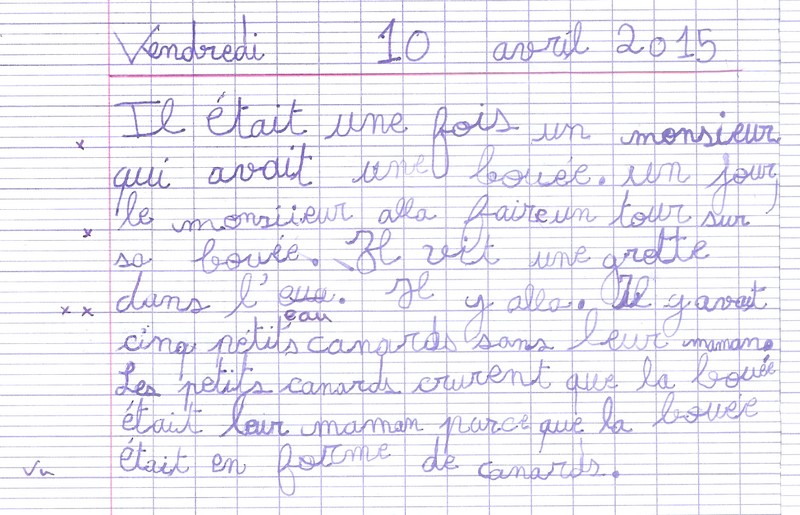 Vendredi 10 avril 2015
Il était une fois un monsieur
qui avait une bouée. un jour
le monsiieur alla faire un tour sur
sa bouée. Il vit une grotte
dans l'eue. Il y alla. Il y avait
eau
cinq petits canards sans leur maman.
Les petits canards crurent que la bouée
était leur maman parce que la bouée
était en forme de canards.
Vu